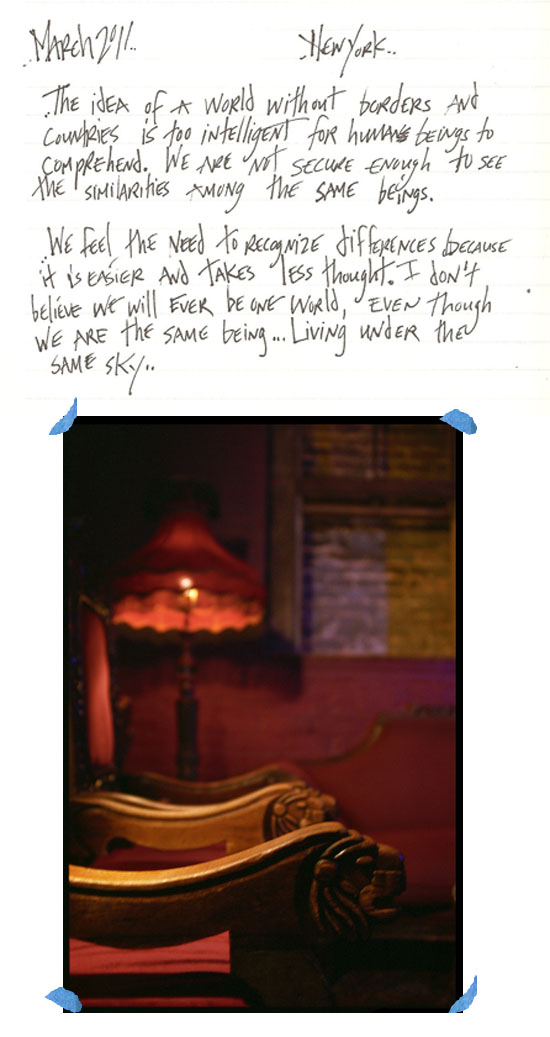 March 2011..
New York..
The idea of a world without borders and
countries is too intelligent for human beings to
comprehend. We are not secure enough to see
the similarities among the same beings.
We feel the need to recognize differences because
it is easier and takes less thought. I don't
believe we will ever be one world, even though
we are the same being... Living under the
same sky..